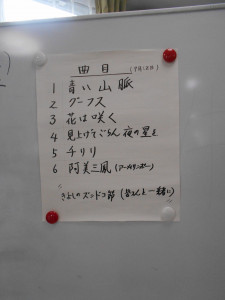 曲目
1 青い山脈
2 グーフス
3 花は咲く
4 見上げてごらん夜の星を
5 チリリ
6 阿美三鳳
きよしのズンドコ節 (皆さんと一緒に)